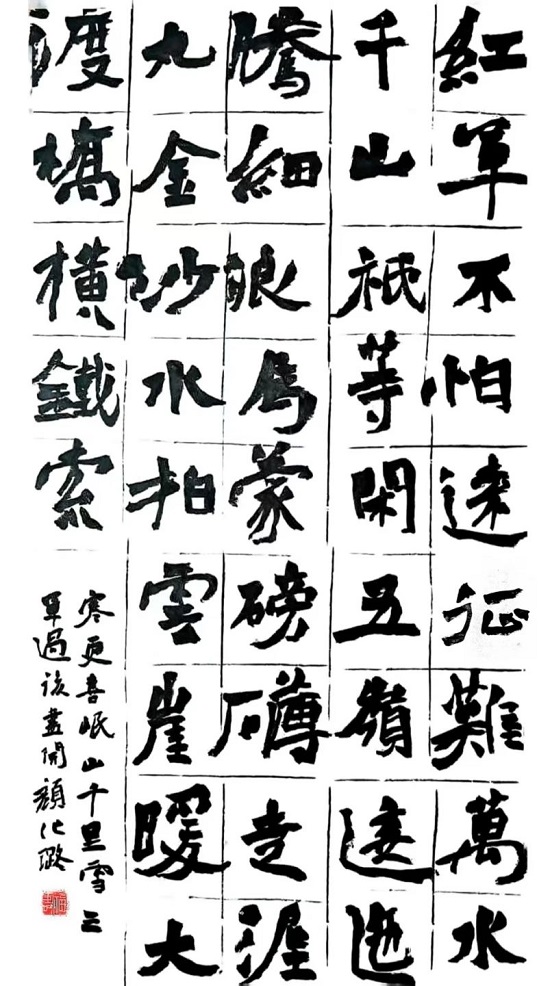 紅軍不怕遠征難萬水
千山祇等閑五嶺逶迤
騰細浪烏蒙磅礴走泥
丸金沙水拍雲崖暖大
渡橋橫鐵索
寒更喜岷山千里雪三
軍過後盡開顏